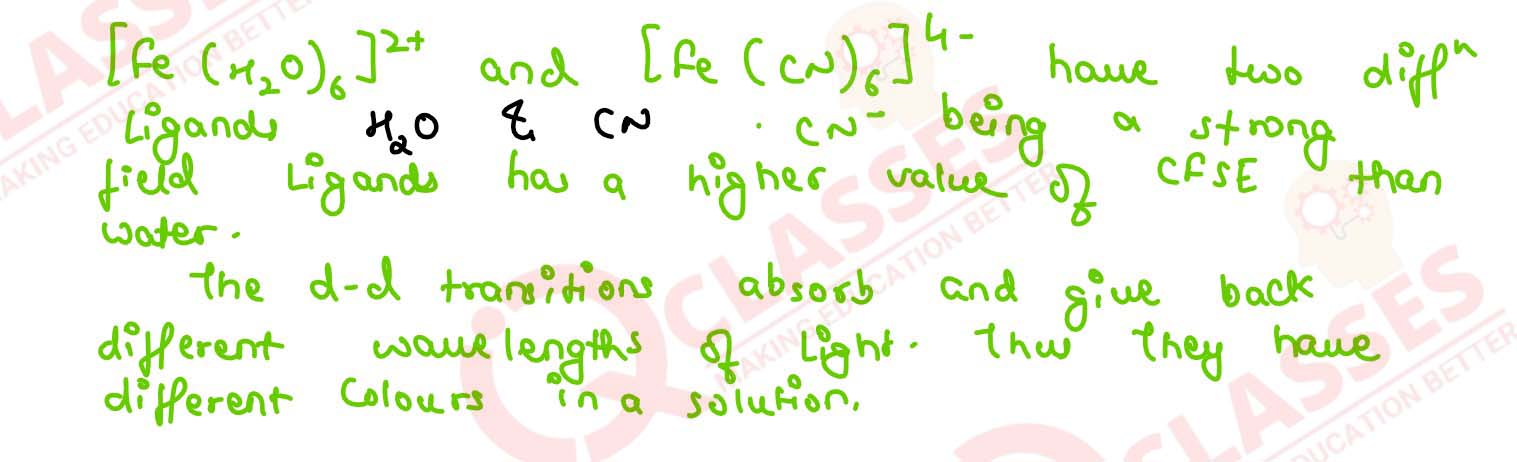 [Fe (H₂O)₆]²⁺ and [Fe (CN)₆]⁴⁻ have two diffⁿ
Ligands H₂O & CN . CN⁻ being a strong
field Ligands has a higher value of CFSE than
water.
The d-d transitions absorb and give back
different wavelengths of Light. Thus They have
different Colours in a solution.